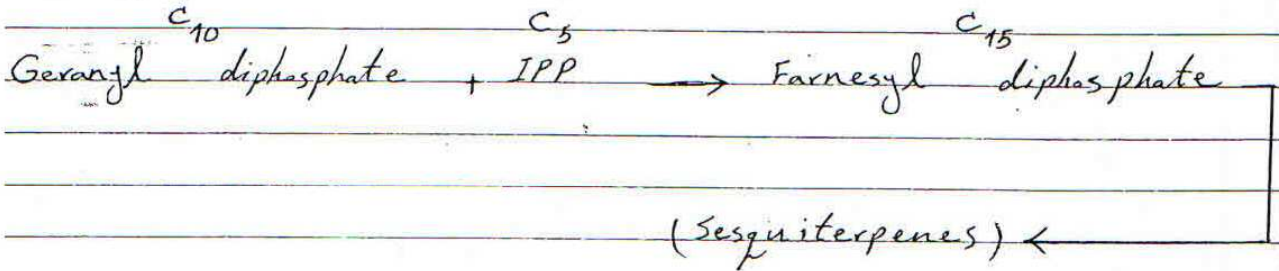 C10 C5 C15
Geranyl diphosphate + IPP → Farnesyl diphosphate
(Sesquiterpenes) ←